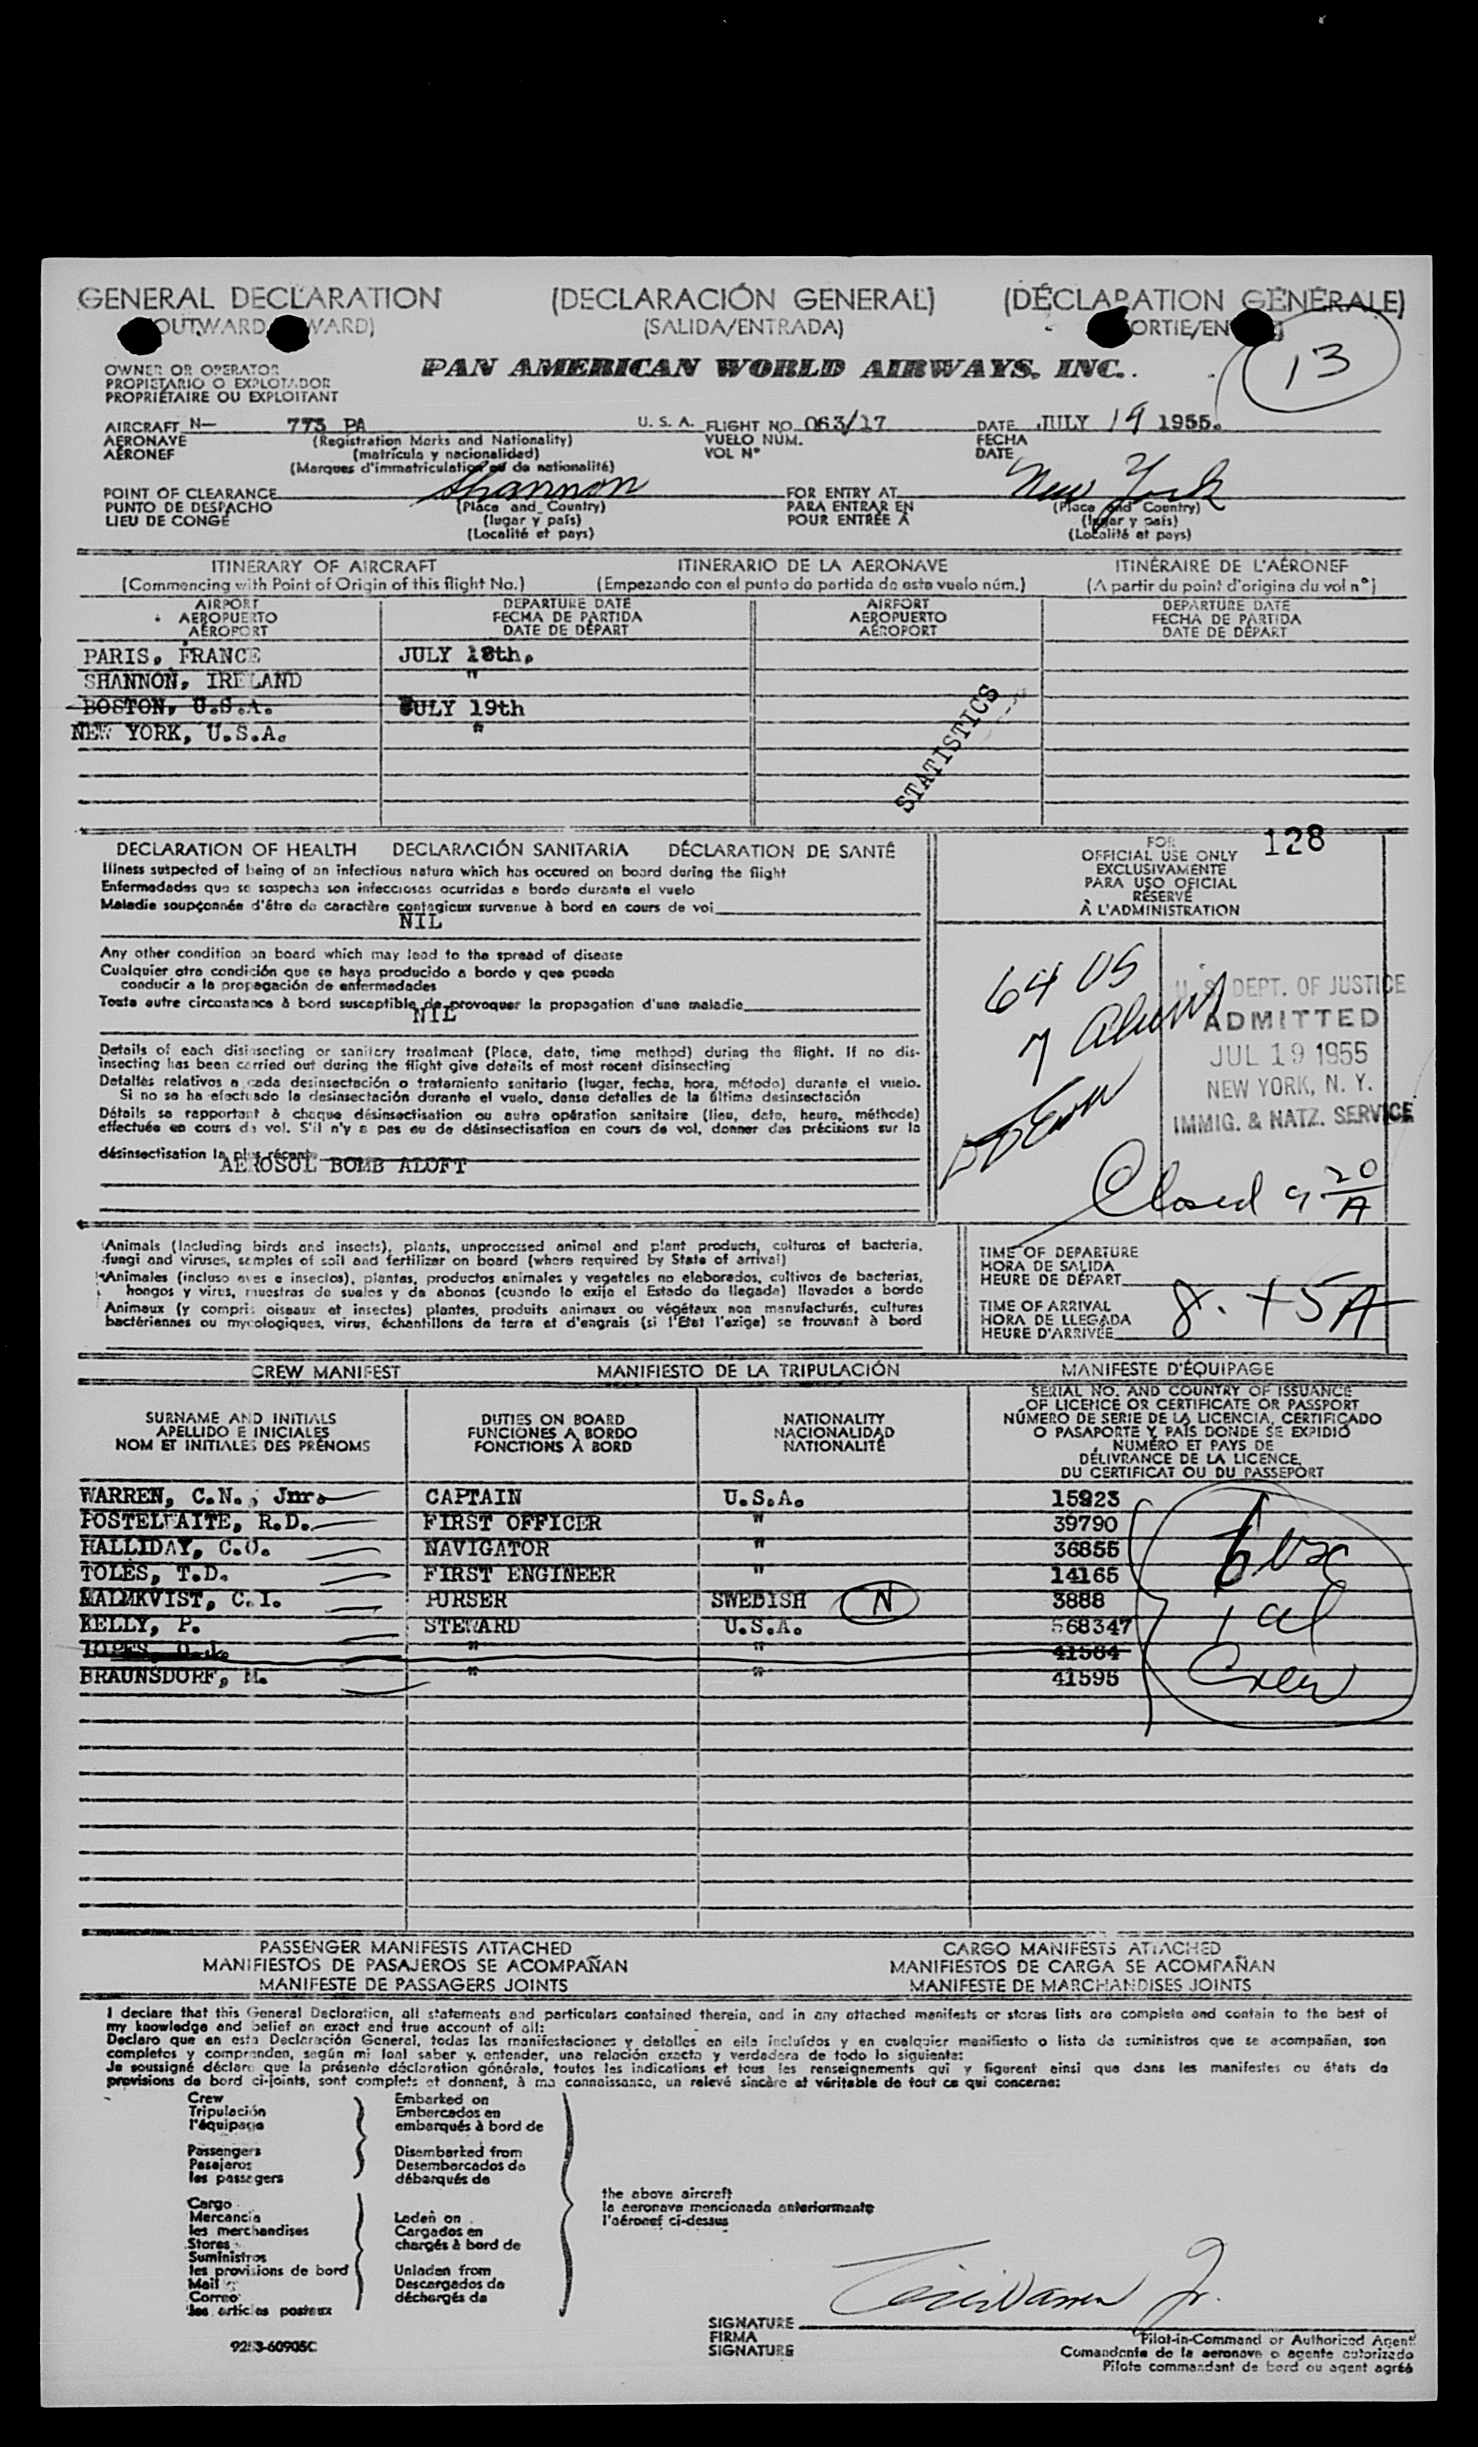 GENERAL DECLARATION (DECLARACIÓN GENERAL) (DÉCLARATION GÉNÉRALE)
OUTWARD WARD) (SALIDA/ENTRADA) ORTIE/EN
13
OWNER OR OPERATOR
PROPIETARIO O EXPLOTADOR
PROPRIÉTAIRE OU EXPLOITANT
PAN AMERICAN WORLD AIRWAYS, INC.
AIRCRAFT N— 773 PA U. S. A. FLIGHT NO. 063/17 DATE JULY 19 1955.
AERONAVE (Registration Marks and Nationality) VUELO NÚM. FECHA
AÉRONEF (matrícula y nacionalidad) VOL Nº DATE
(Marques d'immatriculation et de nationalité)
POINT OF CLEARANCE Shannon FOR ENTRY AT New York
PUNTO DE DESPACHO (Place and Country) PARA ENTRAR EN (Place and Country)
LIEU DE CONGÉ (lugar y país) POUR ENTRÉE À (lugar y país)
(Localité et pays) (Localité et pays)
ITINERARY OF AIRCRAFT ITINERARIO DE LA AERONAVE ITINÉRAIRE DE L'AÉRONEF
(Commencing with Point of Origin of this flight No.) (Empezando con el punto de partida de este vuelo núm.) (A partir du point d'origine du vol nº)
AIRPORT DEPARTURE DATE AIRPORT DEPARTURE DATE
AEROPUERTO FECHA DE PARTIDA AEROPUERTO FECHA DE PARTIDA
AÉROPORT DATE DE DÉPART AÉROPORT DATE DE DÉPART
PARIS, FRANCE JULY 18th,
SHANNON, IRELAND "
BOSTON, U.S.A. JULY 19th
NEW YORK, U.S.A. "
STATISTICS
DECLARATION OF HEALTH DECLARACIÓN SANITARIA DÉCLARATION DE SANTÉ
Illness suspected of being of an infectious nature which has occured on board during the flight
Enfermedades que se sospecha son infecciosas ocurridas a bordo durante el vuelo
Maladie soupçonnée d'être de caractère contagieux survenue à bord en cours de vol
NIL
Any other condition on board which may lead to the spread of disease
Cualquier otra condición que se haya producido a bordo y que pueda
conducir a la propagación de enfermedades
Toute autre circonstance à bord susceptible de provoquer la propagation d'une maladie
NIL
Details of each disinsecting or sanitary treatment (Place, date, time method) during the flight. If no dis-
insecting has been carried out during the flight give details of most recent disinsecting
Detalles relativos a cada desinsectación o tratamiento sanitario (lugar, fecha, hora, método) durante el vuelo.
Si no se ha efectuado la desinsectación durante el vuelo, dense detalles de la última desinsectación
Détails se rapportant à chaque désinsectisation ou autre opération sanitaire (lieu, date, heure, méthode)
effectuée en cours de vol. S'il n'y a pas eu de désinsectisation en cours de vol, donner des précisions sur la
désinsectisation la plus récente
AEROSOL BOMB ALOFT
FOR 128
OFFICIAL USE ONLY
EXCLUSIVAMENTE
PARA USO OFICIAL
RÉSERVÉ
À L'ADMINISTRATION
64 US
7 Aliens
U. S. DEPT. OF JUSTICE
ADMITTED
JUL 19 1955
NEW YORK, N. Y.
IMMIG. & NATZ. SERVICE
Closed 9 20/A
Animals (Including birds and insects), plants, unprocessed animal and plant products, cultures of bacteria,
fungi and viruses, samples of soil and fertilizer on board (where required by State of arrival)
Animales (incluso aves e insectos), plantas, productos animales y vegetales no elaborados, cultivos de bacterias,
hongos y virus, muestras de suelos y de abonos (cuando lo exija el Estado de llegada) llevados a bordo
Animaux (y compris oiseaux et insectes) plantes, produits animaux ou végétaux non manufacturés, cultures
bactériennes ou mycologiques, virus, échantillons de terre et d'engrais (si l'État l'exige) se trouvant à bord
TIME OF DEPARTURE
HORA DE SALIDA
HEURE DE DÉPART
TIME OF ARRIVAL
HORA DE LLEGADA
HEURE D'ARRIVÉE
CREW MANIFEST MANIFIESTO DE LA TRIPULACIÓN MANIFESTE D'ÉQUIPAGE
SURNAME AND INITIALS DUTIES ON BOARD NATIONALITY
APELLIDO E INICIALES FUNCIONES A BORDO NACIONALIDAD
NOM ET INITIALES DES PRÉNOMS FONCTIONS À BORD NATIONALITÉ
SERIAL NO. AND COUNTRY OF ISSUANCE
OF LICENCE OR CERTIFICATE OR PASSPORT
NÚMERO DE SERIE DE LA LICENCIA, CERTIFICADO
O PASAPORTE Y PAÍS DONDE SE EXPIDIÓ
NUMÉRO ET PAYS DE
DÉLIVRANCE DE LA LICENCE,
DU CERTIFICAT OU DU PASSEPORT
WARREN, C.N., Jnr. CAPTAIN U.S.A. 15923
POSTELTAITE, R.D. FIRST OFFICER " 39790
HALLIDAY, C.O. NAVIGATOR " 36855
TOLES, T.D. FIRST ENGINEER " 14165
MALMKVIST, C.I. PURSER SWEDISH N 3888
KELLY, P. STEWARD U.S.A. 568347
" " 41564
BRAUNSDORF, M. " " 41595
6 usc
1 al
Crew
PASSENGER MANIFESTS ATTACHED CARGO MANIFESTS ATTACHED
MANIFIESTOS DE PASAJEROS SE ACOMPAÑAN MANIFIESTOS DE CARGA SE ACOMPAÑAN
MANIFESTE DE PASSAGERS JOINTS MANIFESTE DE MARCHANDISES JOINTS
I declare that this General Declaration, all statements and particulars contained therein, and in any attached manifests or stores lists are complete and contain to the best of
my knowledge and belief an exact and true account of all:
Declaro que en esta Declaración General, todas las manifestaciones y detalles en ella incluídos y en cualquier manifiesto o lista de suministros que se acompañan, son
completos y comprenden, según mi leal saber y entender, una relación exacta y verdadera de todo lo siguiente:
Je soussigné déclare que la présente déclaration générale, toutes les indications et tous les renseignements qui y figurent ainsi que dans les manifestes ou états de
provisions de bord ci-joints, sont complets et donnent, à ma connaissance, un relevé sincère et véritable de tout ce qui concerne:
Crew Embarked on
Tripulación Embarcados en
l'équipage embarqués à bord de
Passengers Disembarked from
Pasajeros Desembarcados de
les passagers débarqués de
the above aircraft
la aeronave mencionada anteriormente
l'aéronef ci-dessus
Cargo
Mercancía Laden on
les merchandises Cargados en
Stores chargés à bord de
Suministros
les provisions de bord Unladen from
Mail Descargados de
Correo déchargés de
les articles postaux
SIGNATURE
FIRMA
SIGNATURE
Pilot-in-Command or Authorized Agent
Comandante de la aeronave o agente autorizado
Pilote commandant de bord ou agent agréé